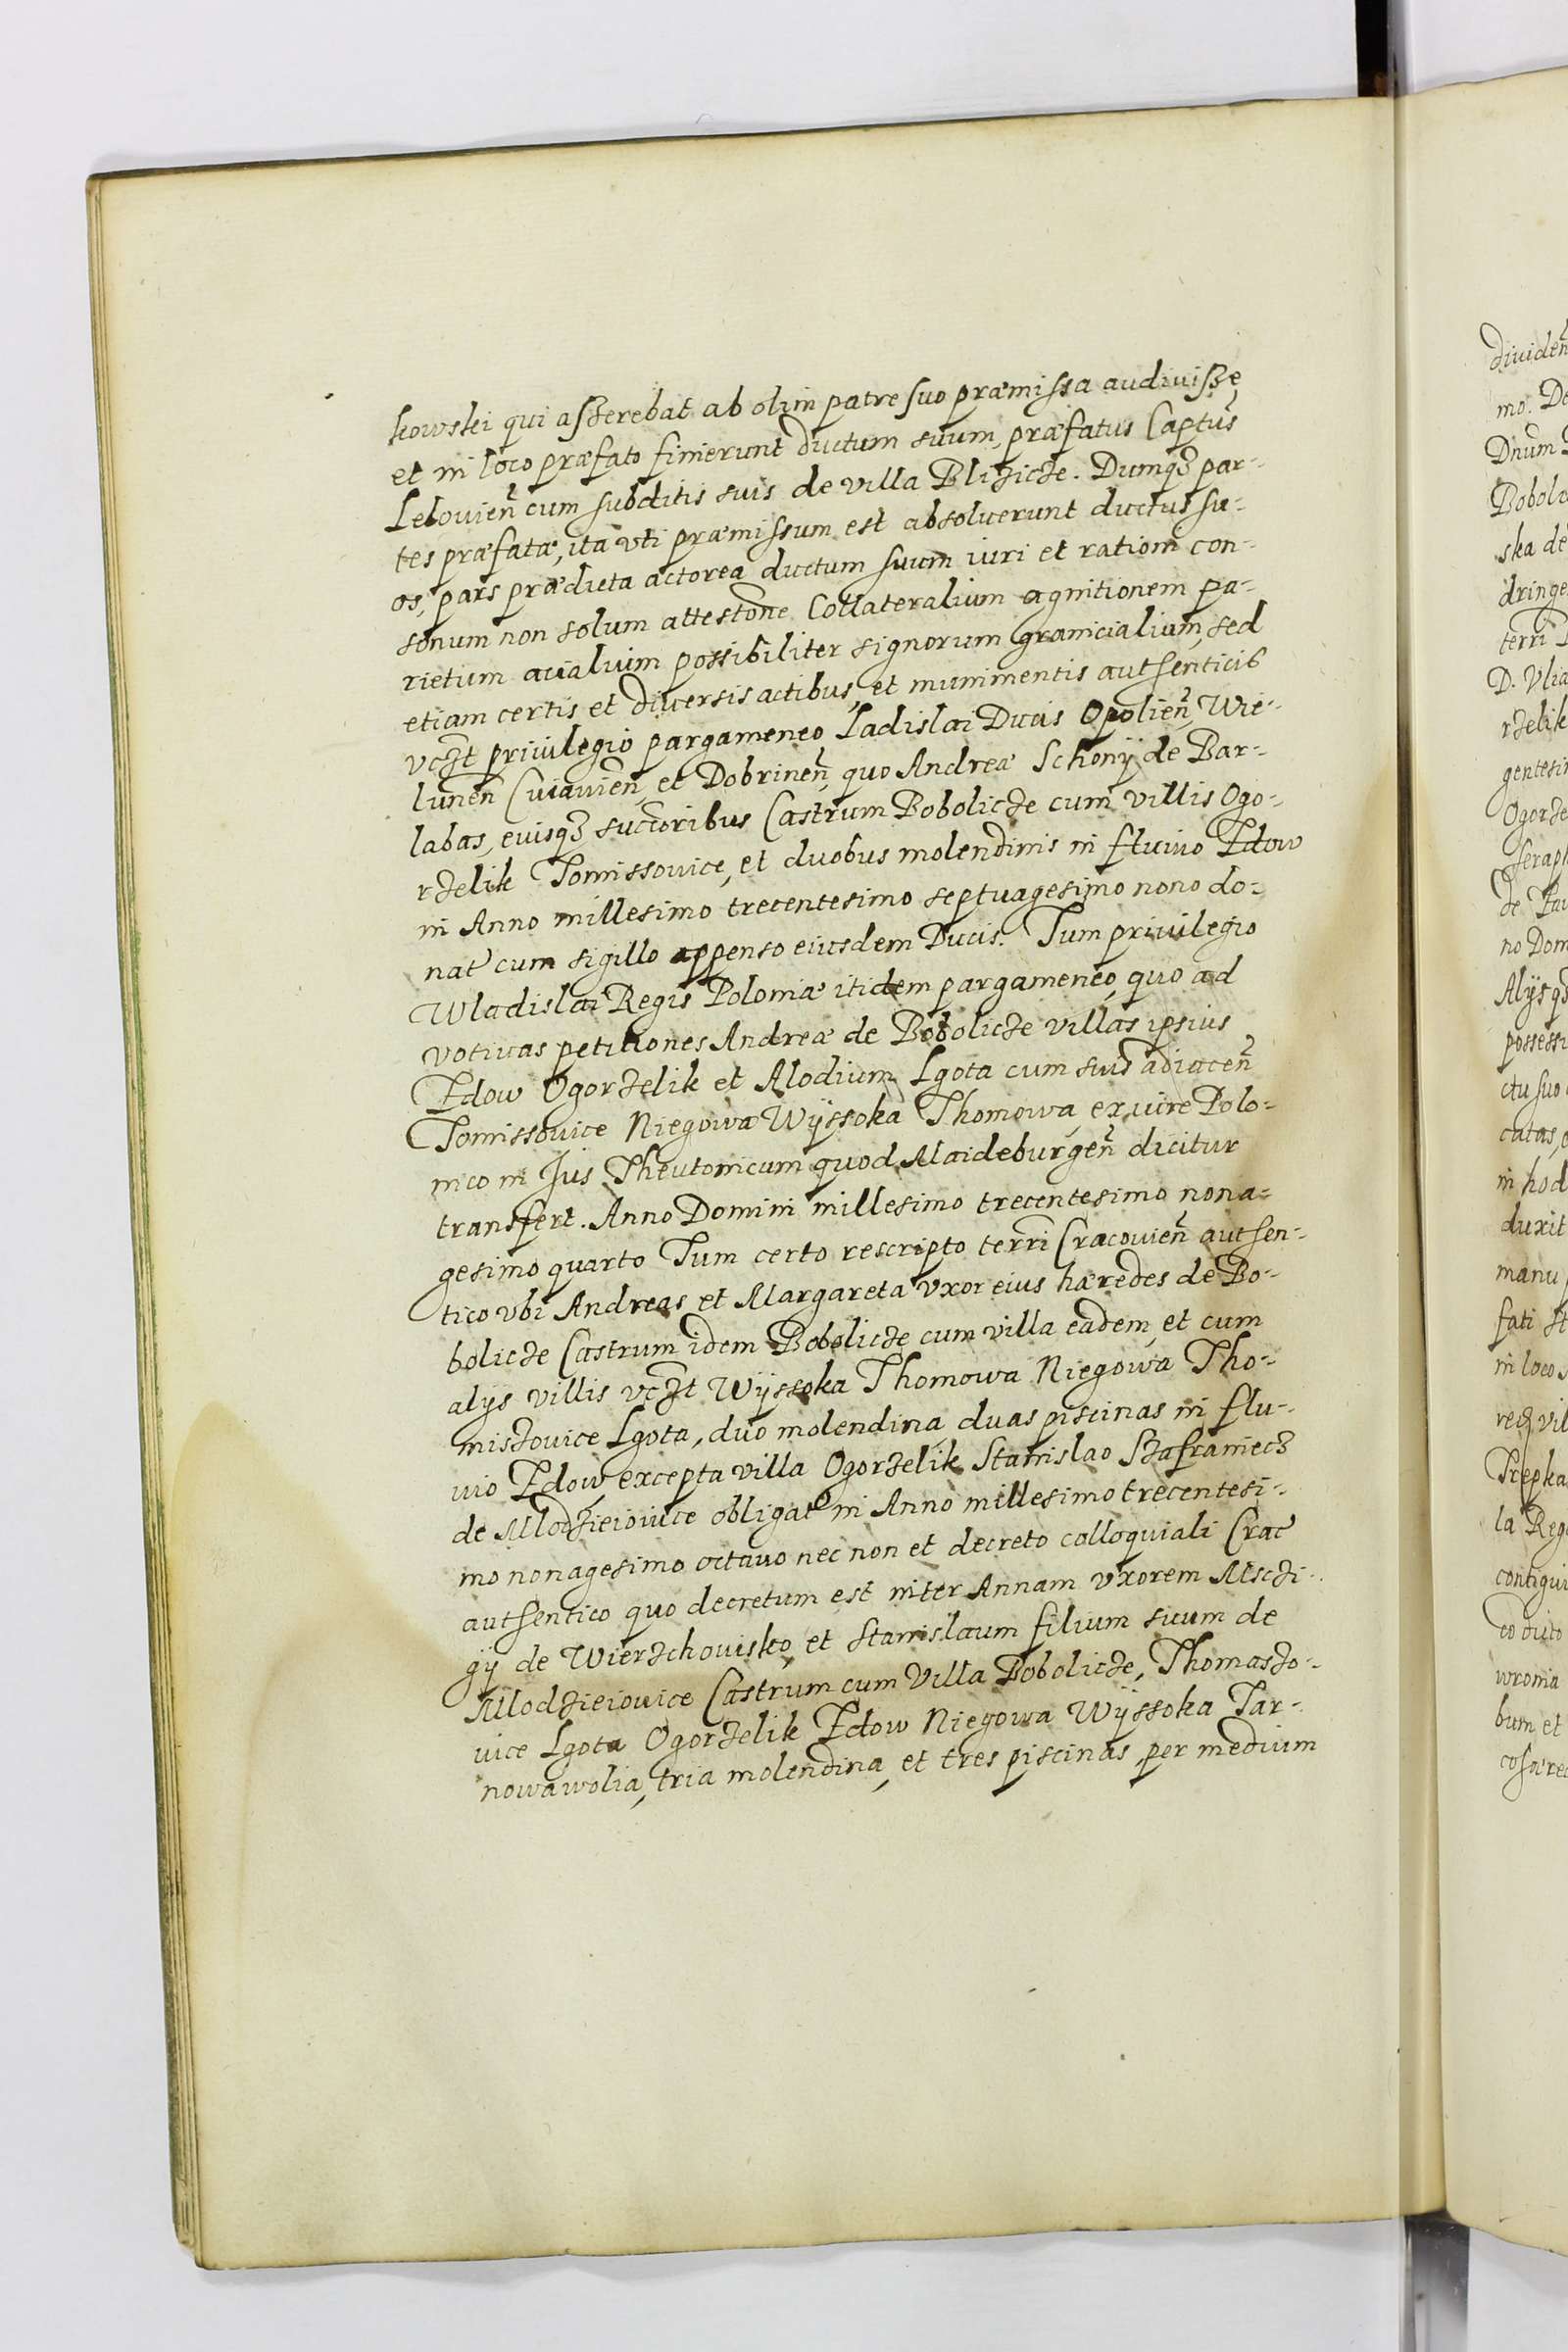 kowski qui asserebat ab olim patre suo præmissa audivisse,
et in loco præfato finierunt ductum suum, præfatus Captus
Lelovien̄ cum subditis suis de villa Blizicze. Dumqꝫ par-
tes præfatæ, ita vti præmissum est absoluerunt ductus su-
os, pars prædicta actorea ductum suum iuri et rationi con-
sonum non solum attestōne Collateralium agnitionem pa-
rietum acialium possibiliter signorum granicialium, sed
etiam certis et diversis actibus, et munimentis authenticis
vczt priuilegio pargameneo Ladislai Ducis Opolien̄, Wie-
lunen̄ Cuiavien̄, et Dobrinen̄, quo Andreæ Schonÿ de Bar-
labas, euisqꝫ succoribus Castrum Bobolicze cum villis Ogo-
rzelik Tomissovice, et duobus molendinis in fluvio Zdow
in Anno millesimo trecentesimo septuagesimo nono do-
nat cum sigillo appenso eiusdem Ducis. Tum priuilegio
Wladislai Regis Poloniæ itidem pargameneo, quo ad
votiuas petitiones Andreæ de Bobolicze villas ipsius
Zdow Ogorzelik et Alodium Lgota cum suis adiacen̄
Tomissovice Niegowa Wÿssoka Thomowa, ex iure Polo-
nico in Jus Theutonicum quod Maideburgen̄ dicitur
transfert. Anno Domini millesimo trecentesimo nona-
gesimo quarto Tum certo rescripto terri Cracovien̄ authen-
tico vbi Andreas et Margareta vxor eius hæredes de Bo-
bolicze Castrum idem Bobolicze cum villa eadem, et cum
alÿs villis vczt Wÿssoka Thomowa Niegowa Tho-
miszovice Lgota, duo molendina, duas piscinas in flu-
vio Zdow, excepta villa Ogorzelik Stanislao Szafraniecz
de Mlodzieiovice obligat in Anno millesimo trecentesi-
mo nonagesimo octauo nec non et decreto colloquiali Crac
authentico quo decretum est inter Annam vxorem Msczi-
gÿ de Wierzchovisko, et Stanislaum filium suum de
Mlodzieiovice Castrum cum Villa Bobolicze, Thomaszo-
vice Lgota Ogorzelik Zdow Niegowa Wÿssoka Tar-
nowawolia, tria molendina, et tres piscinas, per medium